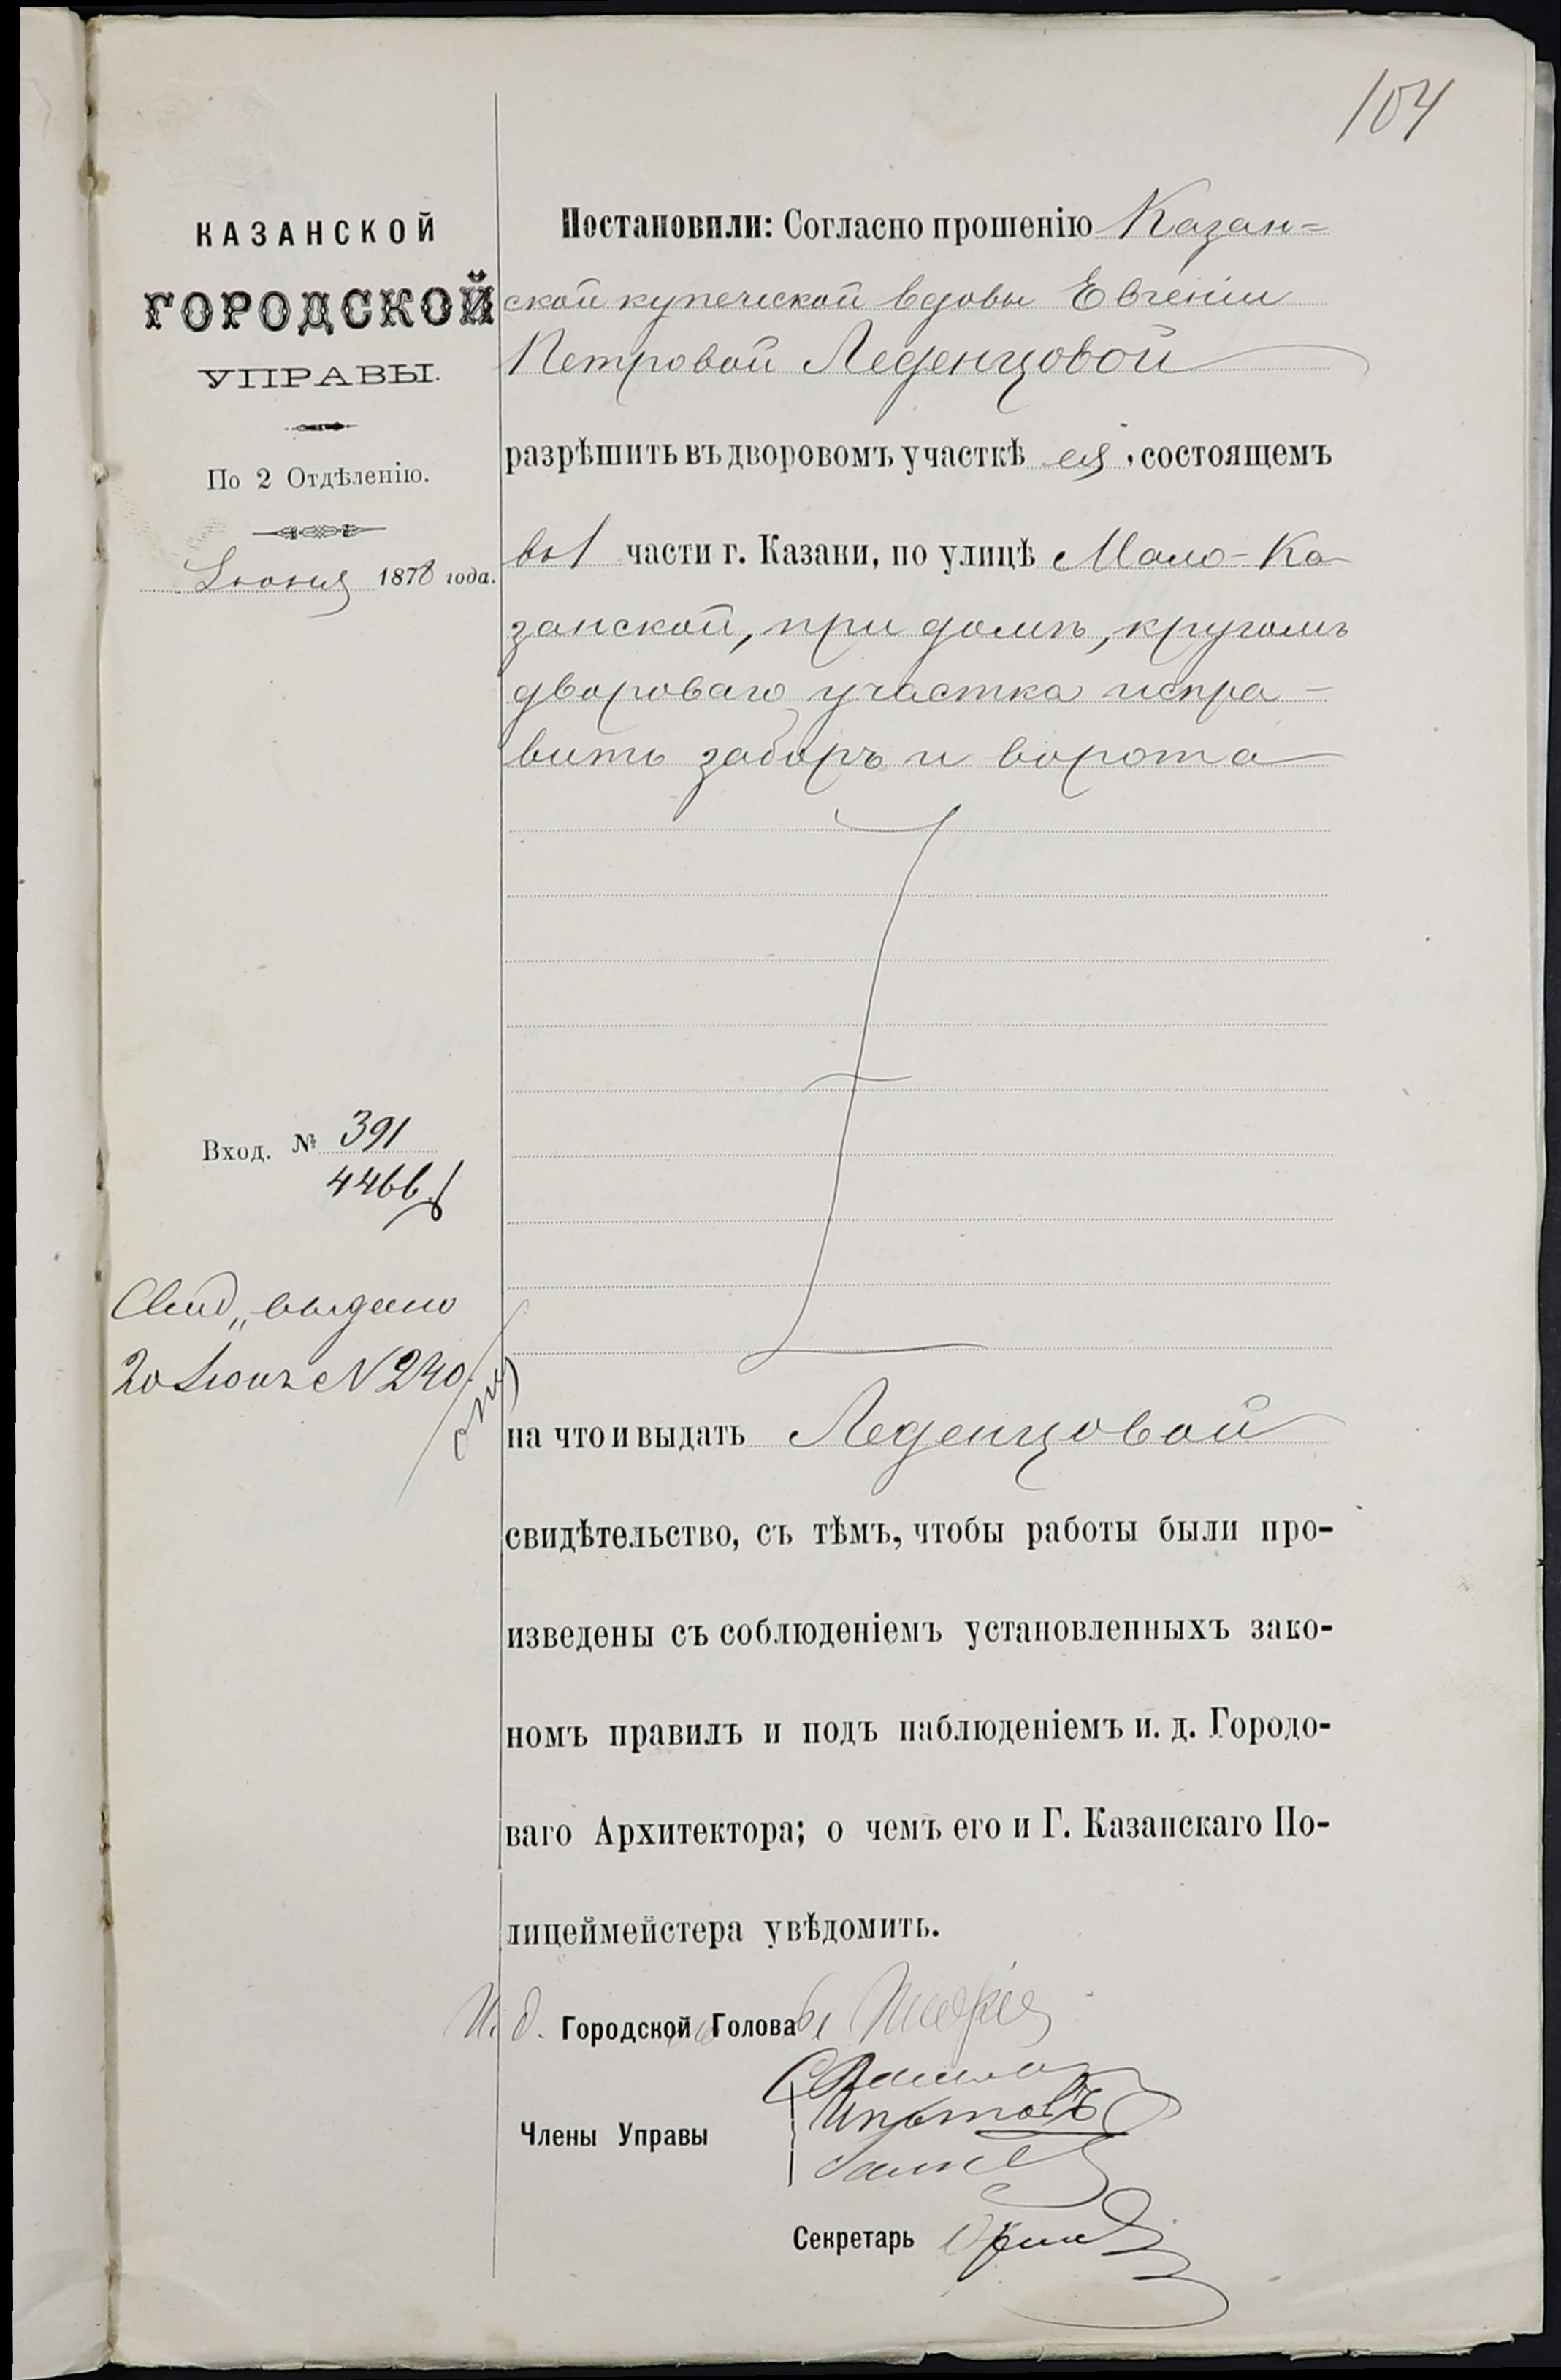 104
КАЗАНСКОЙ
ГОРОДСКОЙ
УПРАВЫ.
По 2 Отдѣленію.
Іюня 1878 года.
Вход. № 391
4466
Свид„ выдано
20 Іюня № 240
Постановили: Согласно прошенію Казан=
ской купеческой вдовы Евгеніи
Петровой Леденцовой
разрѣшить въ дворовомъ участкѣ ея, состоящемъ
въ 1 части г. Казани, по улицѣ Мало-Ка
занской, при домѣ, кругомъ
двороваго участка испра-
вить заборъ и ворота
на что и выдать Леденцовой
свидѣтельство, съ тѣмъ, чтобы работы были про-
изведены съ соблюденіемъ установленныхъ зако-
номъ правилъ и подъ наблюденіемъ и. д. Городо-
ваго Архитектора; о чемъ его и Г. Казанскаго По-
лицеймейстера увѣдомить.
И. д. Городской Голова
Члены Управы
Секретарь